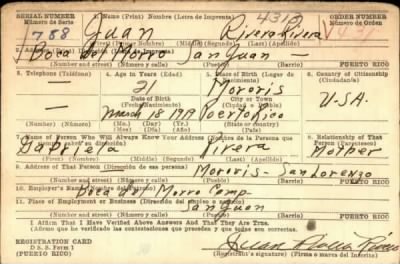 SERIAL NUMBER 1. Name (Print) Nombre (Letra de Imprenta) ORDER NUMBER
Número de Serie Número de Orden
788 Juan Rivera Rivera
(First) (Primer Nombre) (Middle) (Segundo) (Last) (Apellido)
Boca del Morro San Juan
PUERTO RICO
3. Telephone (Teléfono) 4. Age in Years (Edad) 5. Place of Birth (Lugar de Nacimiento) 6. Country of Citizenship (Ciudadanía)
— 21 Morovis
Date of Birth City or Town
(Fecha de Nacimiento) (Ciudad o Pueblo) U-SA.
— March 18 Puerto Rico
(Number) (Número) (Mo.) (Day) (Yr.)
7. Name of Person Who Will Always Know Your Address (Nombre de la Persona que 8. Relationship of That Person (Parentesco)
Gabriela Rivera Mother
(First) (Primer) (Middle) (Segundo) (Last) (Apellido)
9. Address of That Person (Dirección de esa persona)
Morovis - San Lorenzo
(Number and street) (Número y calle) PUERTO RICO
10. Employer's Name
Boca del Morro Camp
11. Place of Employment or Business (Dirección del empleo o negocio)
San Juan
(Number and street) (Número y calle) PUERTO RICO
I Affirm That I Have Verified Above Answers And That They Are True.
Afirmo que he verificado las contestaciones que preceden y que son ciertas.
REGISTRATION CARD
D. S. S. Form 1
(PUERTO RICO) Juan Rivera Rivera
Registrant's signature) (Firma o marca del inscrito)